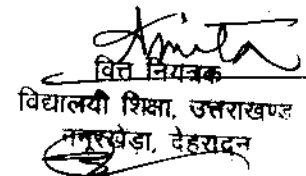 वित्त नियंत्रक
विद्यालयी शिक्षा, उत्तराखण्ड
ननूरखेड़ा, देहरादून